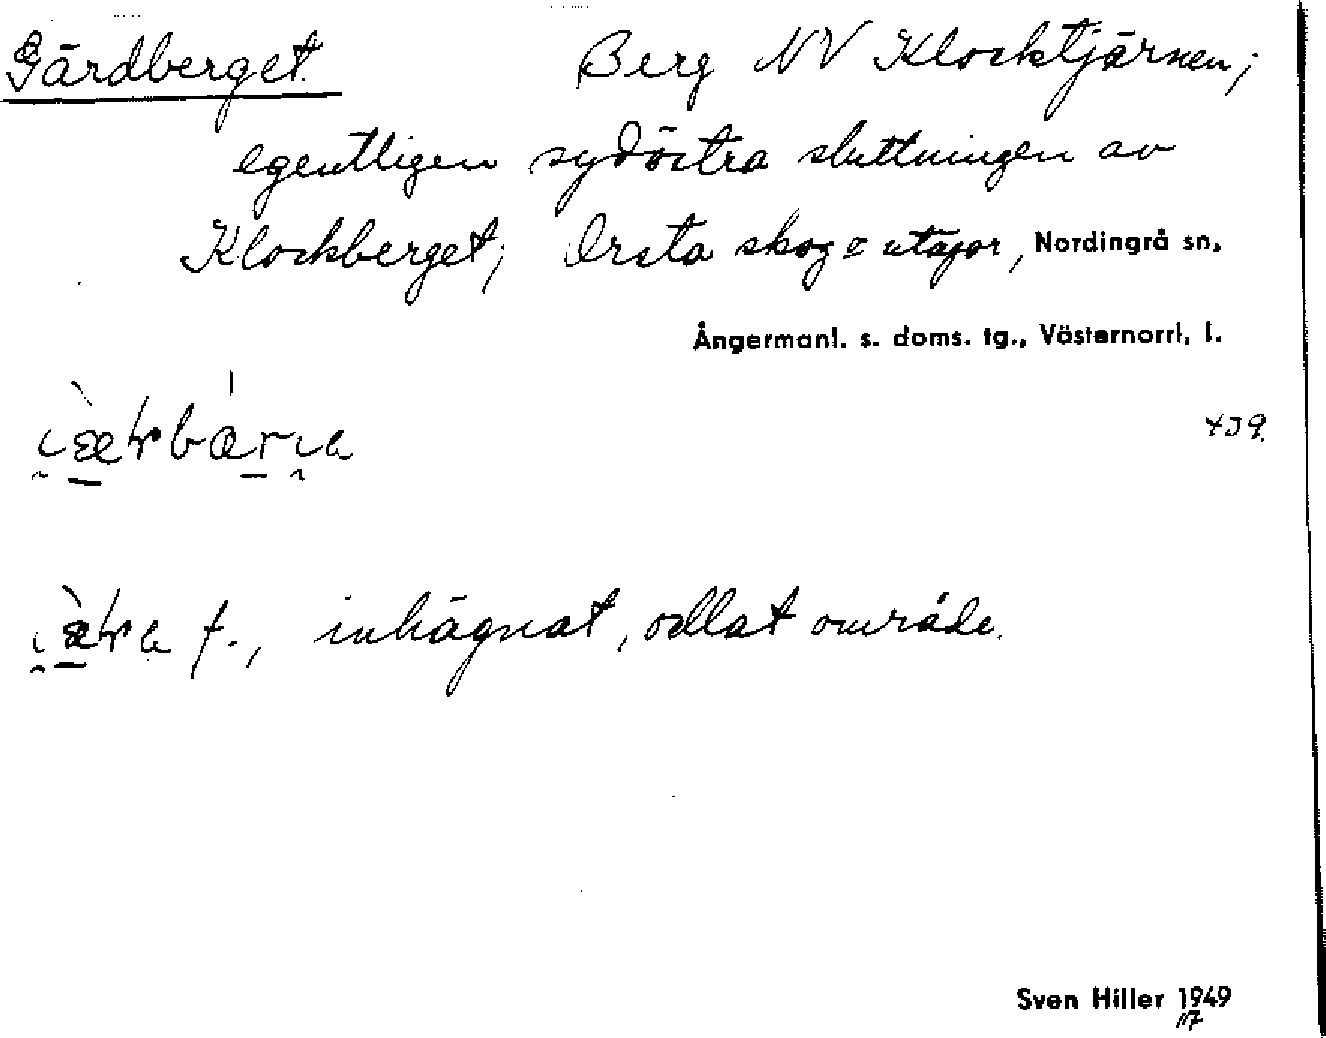 Gärdberget. Berg NV Klocktjärnen;
egentligen sydöstra sluttningen av
Klockberget; Orsta skog o utägor, Nordingrå sn,
Ångermanl. s. doms. tg., Västernorrl. l.
439.
f., inhägnat, odlat område.
Sven Hiller 1949